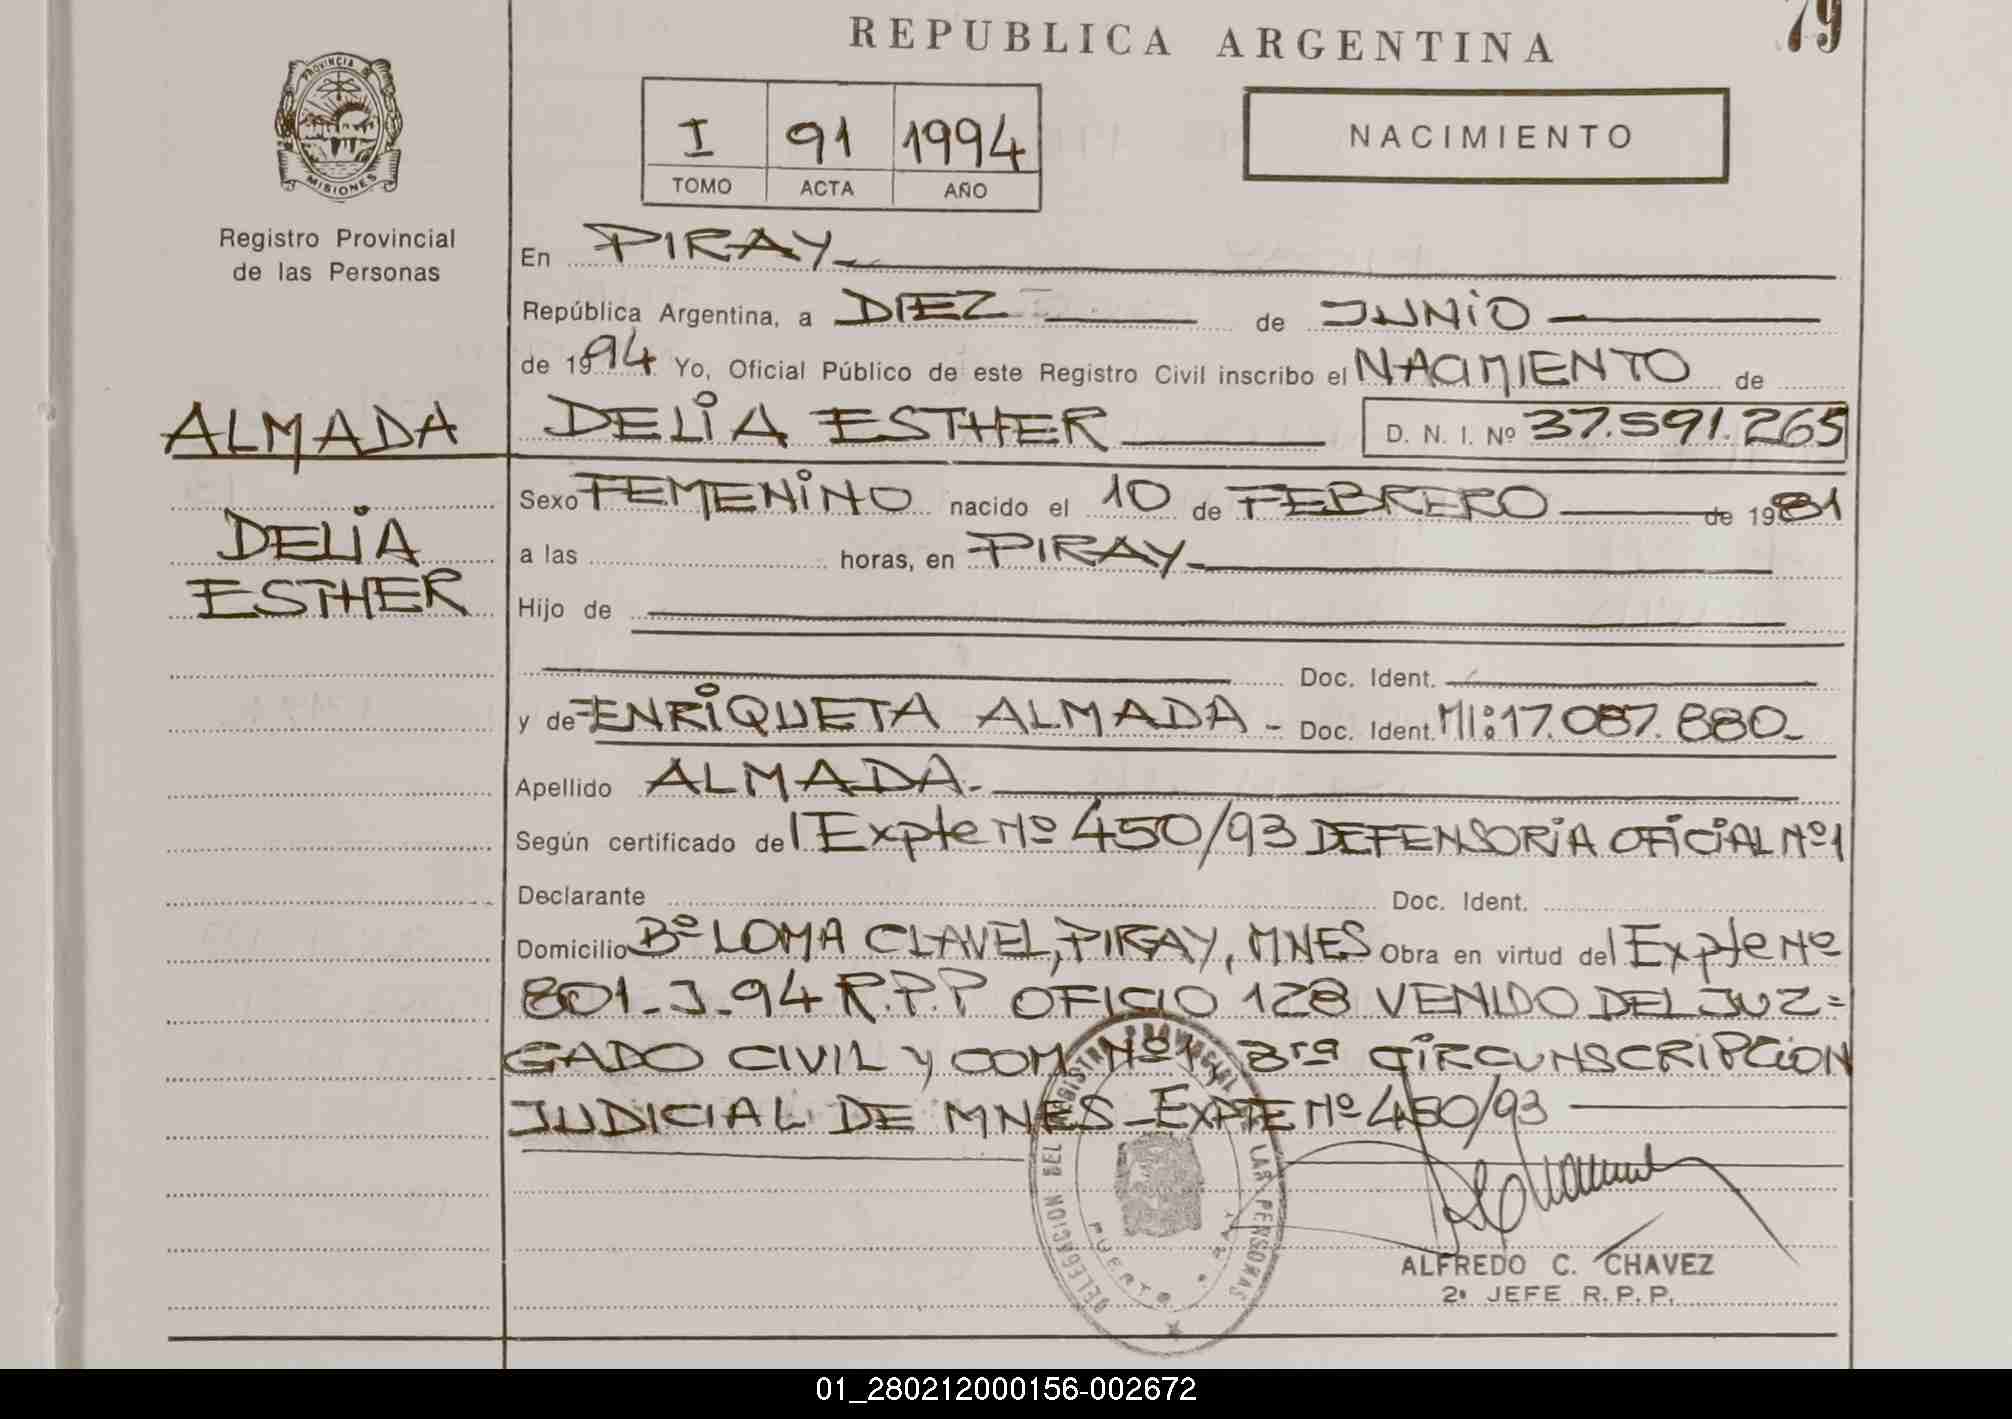 79
REPUBLICA ARGENTINA
PROVINCIA DE
MISIONES
Registro Provincial
de las Personas
I 91 1994
TOMO ACTA AÑO
NACIMIENTO
En PIRAY
República Argentina, a DIEZ de JUNIO
de 1994 Yo, Oficial Público de este Registro Civil inscribo el NACIMIENTO de
ALMADA DELIA ESTHER D. N. I. Nº 37.591.265
Sexo FEMENINO nacido el 10 de FEBRERO de 1981
DELIA
a las horas, en PIRAY
ESTHER
Hijo de
Doc. Ident.
y de ENRIQUETA ALMADA - Doc. Ident. MI: 17.087.880-
Apellido ALMADA.
Según certificado del Expte Nº 450/93 DEFENSORIA OFICIAL Nº 1
Declarante Doc. Ident.
Domicilio Bº LOMA CLAVEL, PIRAY, MNES Obra en virtud del Expte Nº
801-J-94 R.P.P OFICIO 128 VENIDO DEL JUZ=
GADO CIVIL y COM Nº 1, 3ra CIRCUNSCRIPCION
JUDICIAL DE MNES-EXPTE Nº 450/93
DELEGACION DEL REGISTRO PROVINCIAL LAS PERSONAS
PUERTO PIRAY
ALFREDO C. CHAVEZ
2º JEFE R.P.P.
01_280212000156-002672